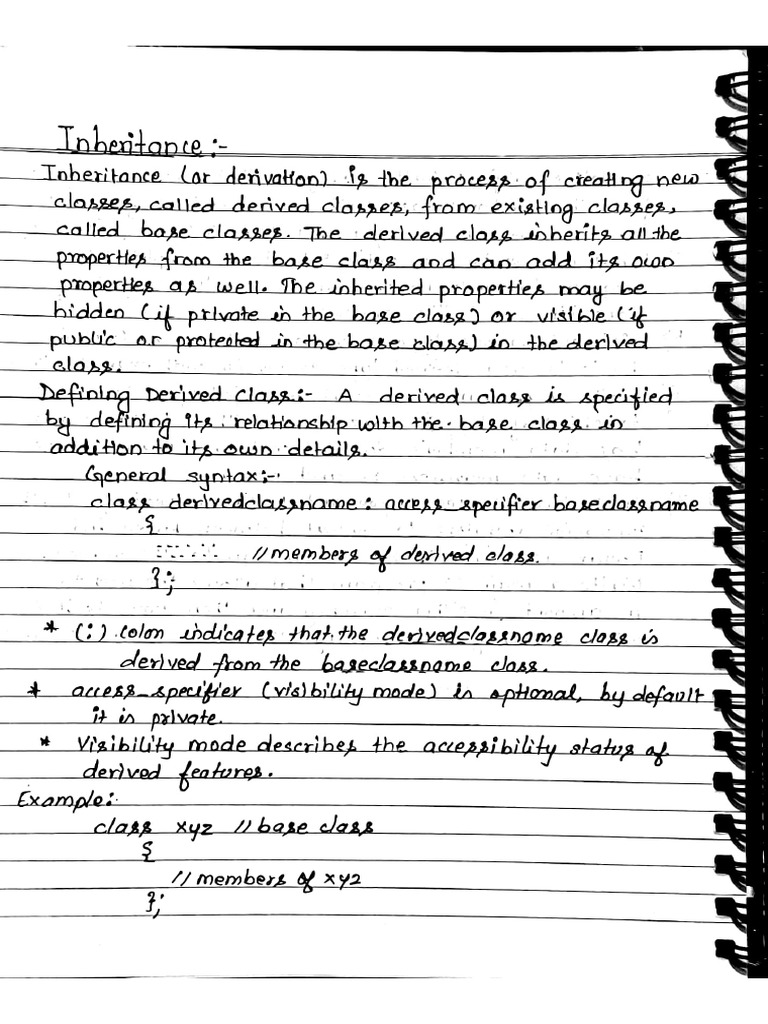 Inheritance :-
Inheritance (or derivation) is the process of creating new
classes, called derived classes, from existing classes,
called base classes. The derived class inherits all the
properties from the base class and can add its own
properties as well. The inherited properties may be
hidden (if private in the base class) or visible (if
public or protected in the base class) in the derived
class.
Defining Derived Class:- A derived class is specified
by defining its relationship with the base class in
addition to its own details.
General syntax:-
class derivedclassname : access_specifier baseclassname
{
------ //members of derived class.
};
* (:) colon indicates that the derivedclassname class is
derived from the baseclassname class.
* access_specifier (visibility mode) is optional, by default
it is private.
* Visibility mode describes the accessibility status of
derived features.
Example:
class xyz //base class
{
//members of xyz
};